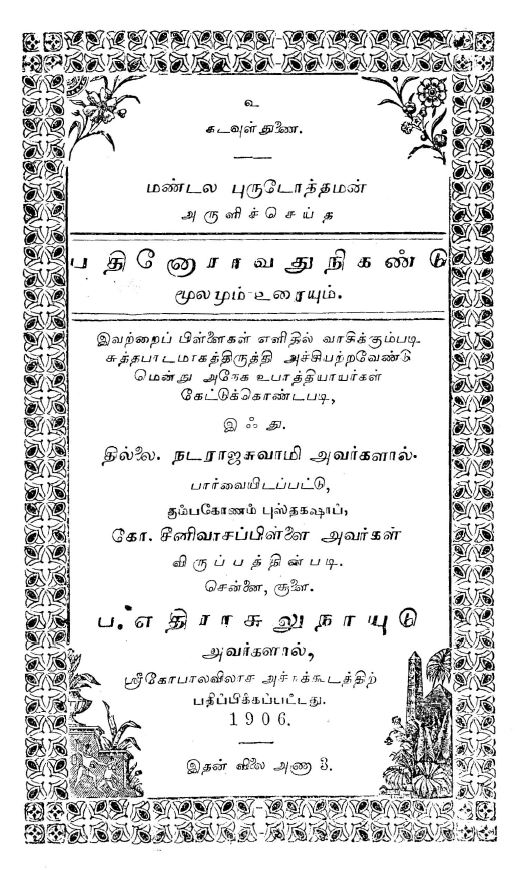 உ
கடவுள் துணை.
மண்டல புருடோத்தமன்
அருளிச்செய்த
பதினோராவது நிகண்டு
மூலமும் உரையும்.
இவற்றைப் பிள்ளைகள் எளிதில் வாசிக்கும்படி
சுத்தபாடமாகத்திருத்தி அச்சியற்றவேண்டு
மென்று அநேக உபாத்தியாயர்கள்
கேட்டுக்கொண்டபடி,
இஃது.
தில்லை. நடராஜசுவாமி அவர்களால்.
பார்வையிடப்பட்டு,
கும்பகோணம் புஸ்தகஷாப்,
கோ. சீனிவாசப்பிள்ளை அவர்கள்
விருப்பத்தின்படி.
சென்னை, சூளை.
ப. எதிராசுலுநாயுடு
அவர்களால்,
ஸ்ரீகோபாலவிலாச அச்சுக்கூடத்திற்
பதிப்பிக்கப்பட்டது.
1906.
இதன் விலை அணா 3.